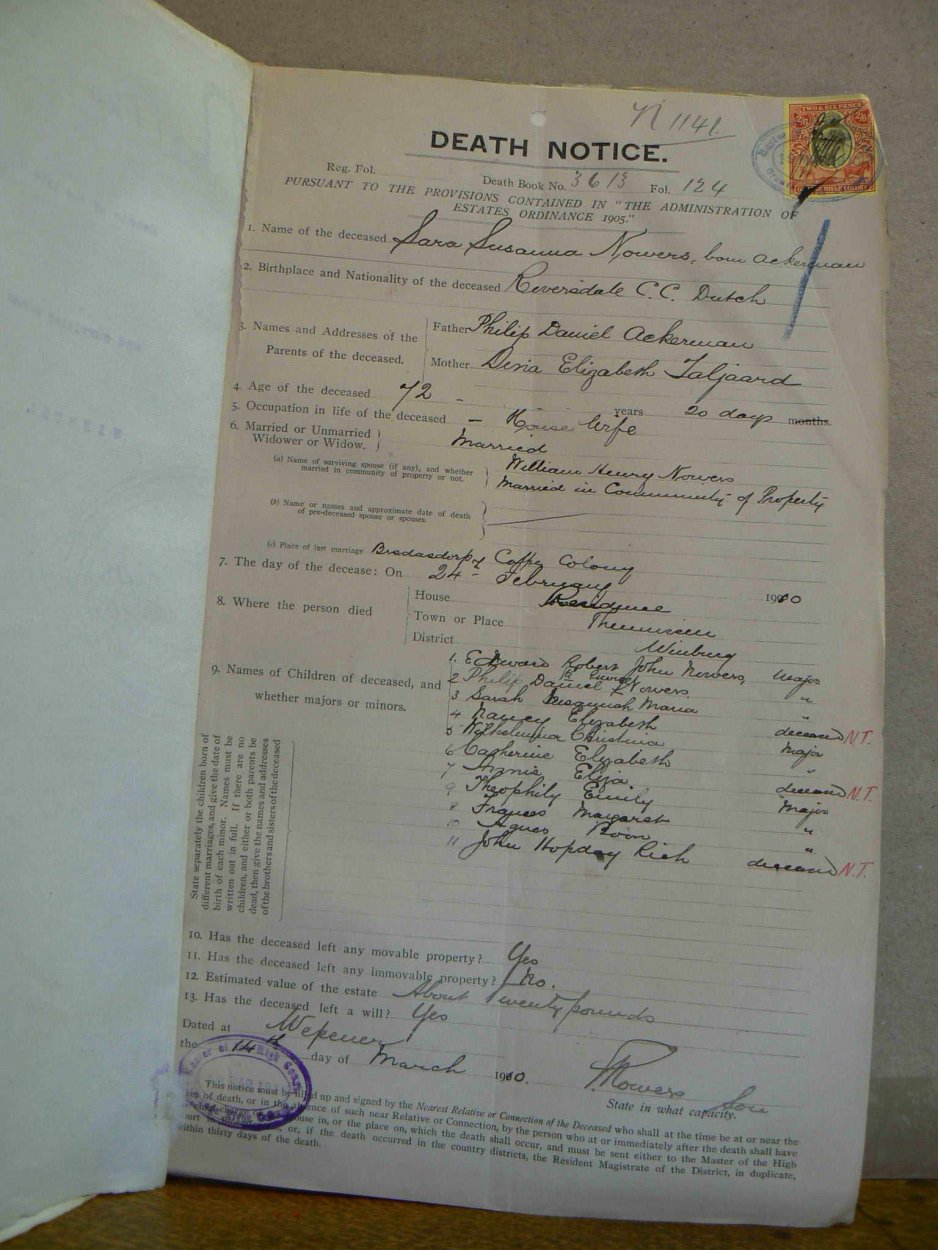 N 1141.
DEATH NOTICE.
TWO & SIX PENCE
2/6 2/6
Reg. Fol. Death Book No. 3613 Fol. 124
PURSUANT TO THE PROVISIONS CONTAINED IN "THE ADMINISTRATION OF
ESTATES ORDINANCE 1905."
1. Name of the deceased Sara Susanna Nowers, born Ackerman
2. Birthplace and Nationality of the deceased Reversdale C.C. Dutch
3. Names and Addresses of the Parents of the deceased.
Father Philip Daniel Ackerman
Mother Dina Elizabeth Taljaard
4. Age of the deceased 72 - years 20 days months.
5. Occupation in life of the deceased - House Wife
6. Married or Unmarried
Widower or Widow. Married
(a) Name of surviving spouse (if any), and whether
married in community of property or not.
William Henry Nowers
Married in Community of Property
(b) Name or names and approximate date of death
of pre-deceased spouse or spouses.
(c) Place of last marriage Bredasdorp, Colony
7. The day of the decease: On 24 - February 1910
8. Where the person died
House Residence
Town or Place Theunissen
District Winburg
9. Names of Children of deceased, and
whether majors or minors.
1. Edward Robert John Nowers, Major
2 Philip Daniel Nowers "
3 Sarah Susannah Maria "
4 Nancy Elizabeth deceased N.T.
5 Wilhelmina Christina Major
6 Catherine Elizabeth "
7 Annie Eliza deceased N.T.
9 Theophily Emily Major
8 Frances Margaret "
10 Agnes "
11 John Hopday Rich deceased N.T.
State separately the children born of
different marriages, and give the date of
birth of each minor. Names must be
written out in full. If there are no
children, and either or both parents be
dead, then give the names and addresses
of the brothers and sisters of the deceased
10. Has the deceased left any movable property? Yes
11. Has the deceased left any immovable property? No.
12. Estimated value of the estate About Twenty pounds
13. Has the deceased left a will? Yes
Dated at Wepener
the 14th day of March 1910.
Nowers Son
State in what capacity.
This notice must be filled up and signed by the Nearest Relative or Connection of the Deceased who shall at the time be at or near the
of death, or in the absence of such near Relative or Connection, by the person who at or immediately after the death shall have
charge of house in, or the place on, which the death shall occur, and must be sent either to the Master of the High
or, if the death occurred in the country districts, the Resident Magistrate of the District, in duplicate,
within thirty days of the death.